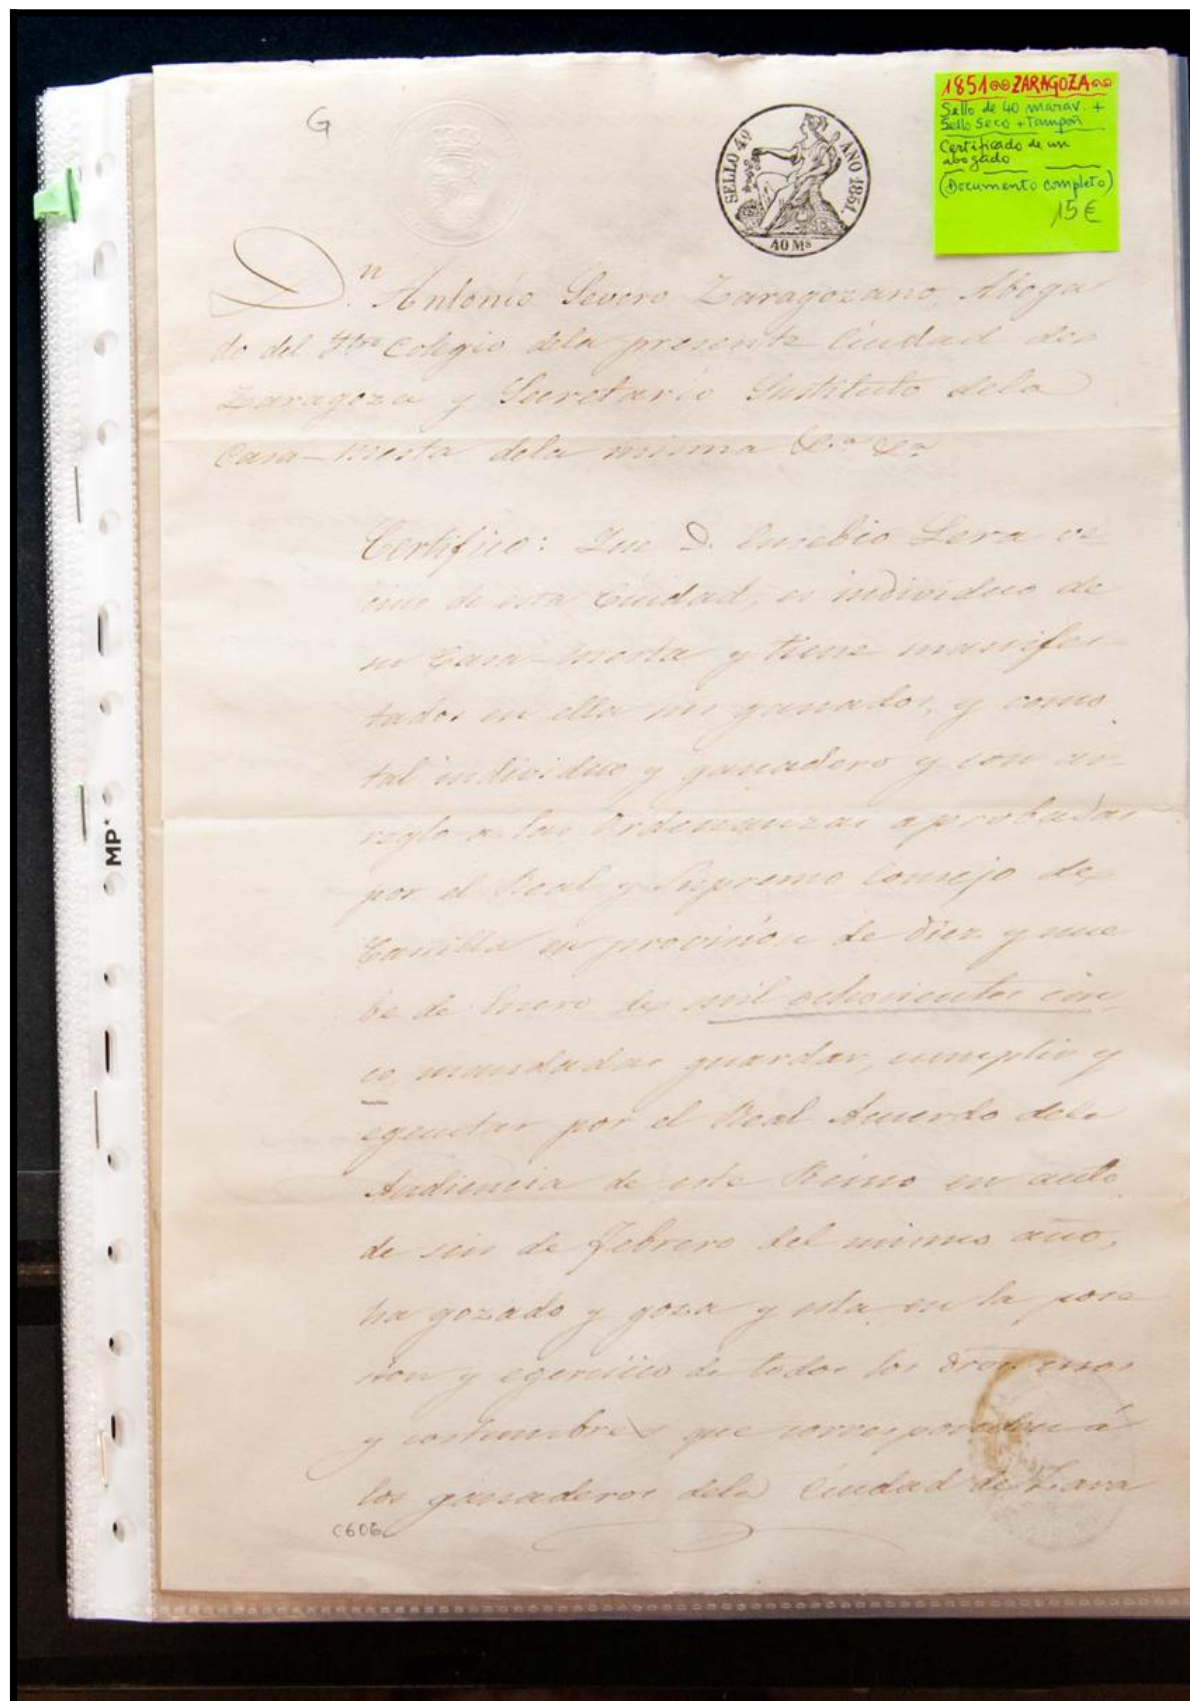 G
SELLO 4º AÑO 1851.
40 Ms
1851 ZARAGOZA
Sello de 40 marav. +
Sello Seco + Tampón
Certificado de un
abogado
(Documento completo)
15 €
D.n Antonio Severo Zaragozano, Aboga
do del Iltre Colegio dela presente Ciudad de
Zaragoza y Secretario Sustituto dela
Casa-Mesta dela misma &.a &.a
Certifico: Que D. Eusebio Lera ve
cino de esta Ciudad, es individuo de
su Casa-mesta y tiene manifes
tados en ella sus ganados, y como
tal individuo y ganadero y con ar
reglo a las Ordenanzas aprobadas
por el Real y Supremo Consejo de
Castilla en provision de diez y nue
be de Enero de mil ochocientos cin
co, mandadas guardar, cumplir y
egecutar por el Real Acuerdo dela
Audiencia de este Reino en auto
de seis de Febrero del mismo año,
ha gozado y goza y esta en la pose
sion y egercicio de todos los usos
y costumbres que corresponden á
los ganaderos dela Ciudad de Zara
C606
MP